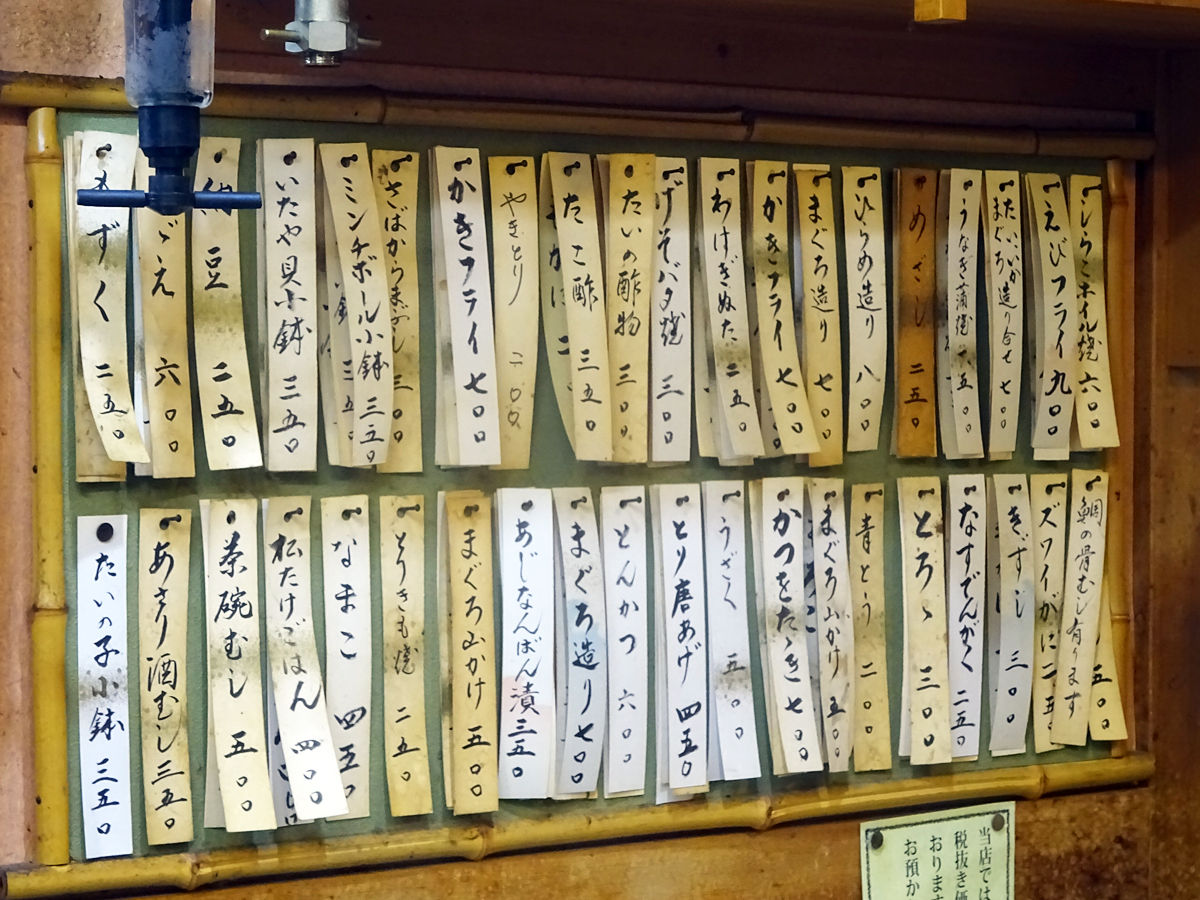 しらこホイル焼 六〇〇
えびフライ 九〇〇
たい、いか
まぐろ造り合せ 七〇〇
うなぎ蒲焼 一五〇
めざし 二五〇
ひらめ造り 八〇〇
まぐろ造り 七〇〇
かきフライ 七〇〇
わけぎぬた 二五〇
げそバタ焼 三〇〇
たいの酢物 三〇〇
たこ酢 三五〇
やきとり 二〇〇
かきフライ 七〇〇
さばからまぶし 三〇〇
ミンチボール小鉢 三五〇
いたや貝小鉢 三五〇
納豆 二五〇
え 六〇〇
もずく 二五〇
鯛の骨むし有ります
五〇〇
ズワイがに 二五
きずし 三〇〇
なすでんがく 二五〇
とろろ 三〇〇
青とう 二〇〇
まぐろ山かけ 五〇〇
かつをたゝき 七〇〇
うざく 五〇〇
とり唐あげ 四五〇
とんかつ 六〇〇
まぐろ造り 七〇〇
あじなんばん漬 三五〇
まぐろ山かけ 五〇〇
とりきも焼 二五〇
なまこ 四五〇
松たけごはん 四〇〇
茶碗むし 五〇〇
あさり酒むし 三五〇
たいの子小鉢 三五〇
当店では
税抜き価
おります
お預か